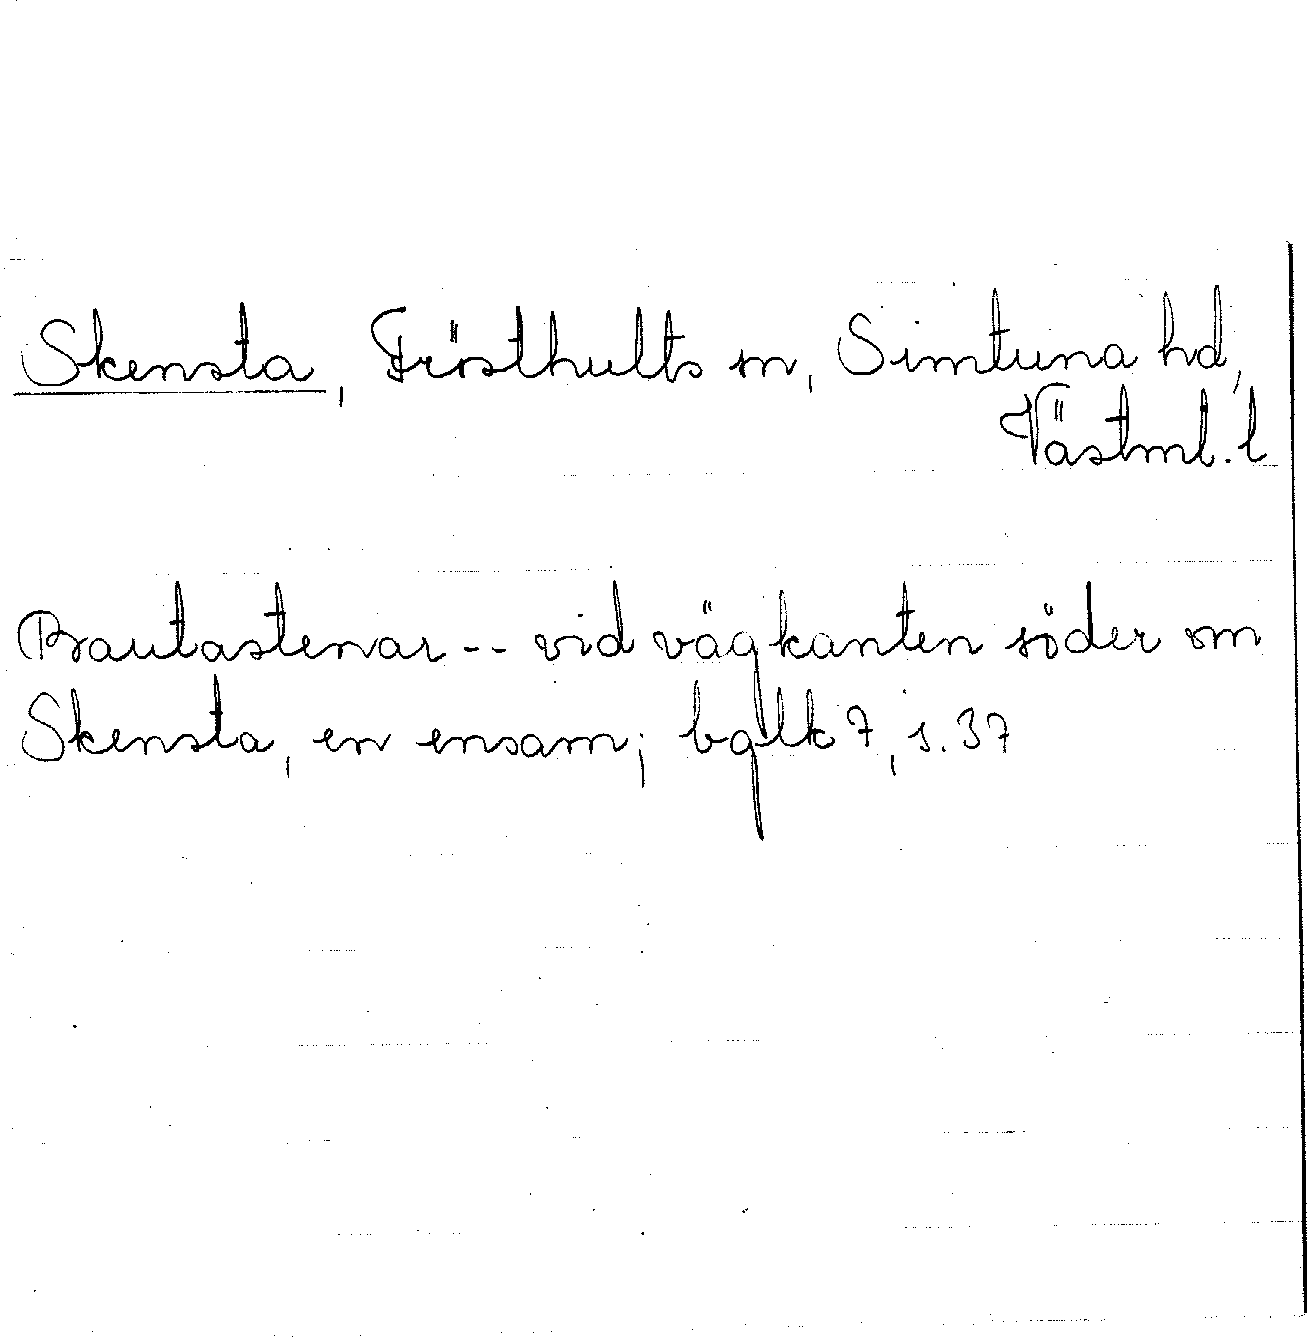 Skensta, Frösthults sn, Simtuna hd,
Västml. l
Bautastenar -- vid vägkanten söder om
Skensta, en ensam; bglk 7, s. 37